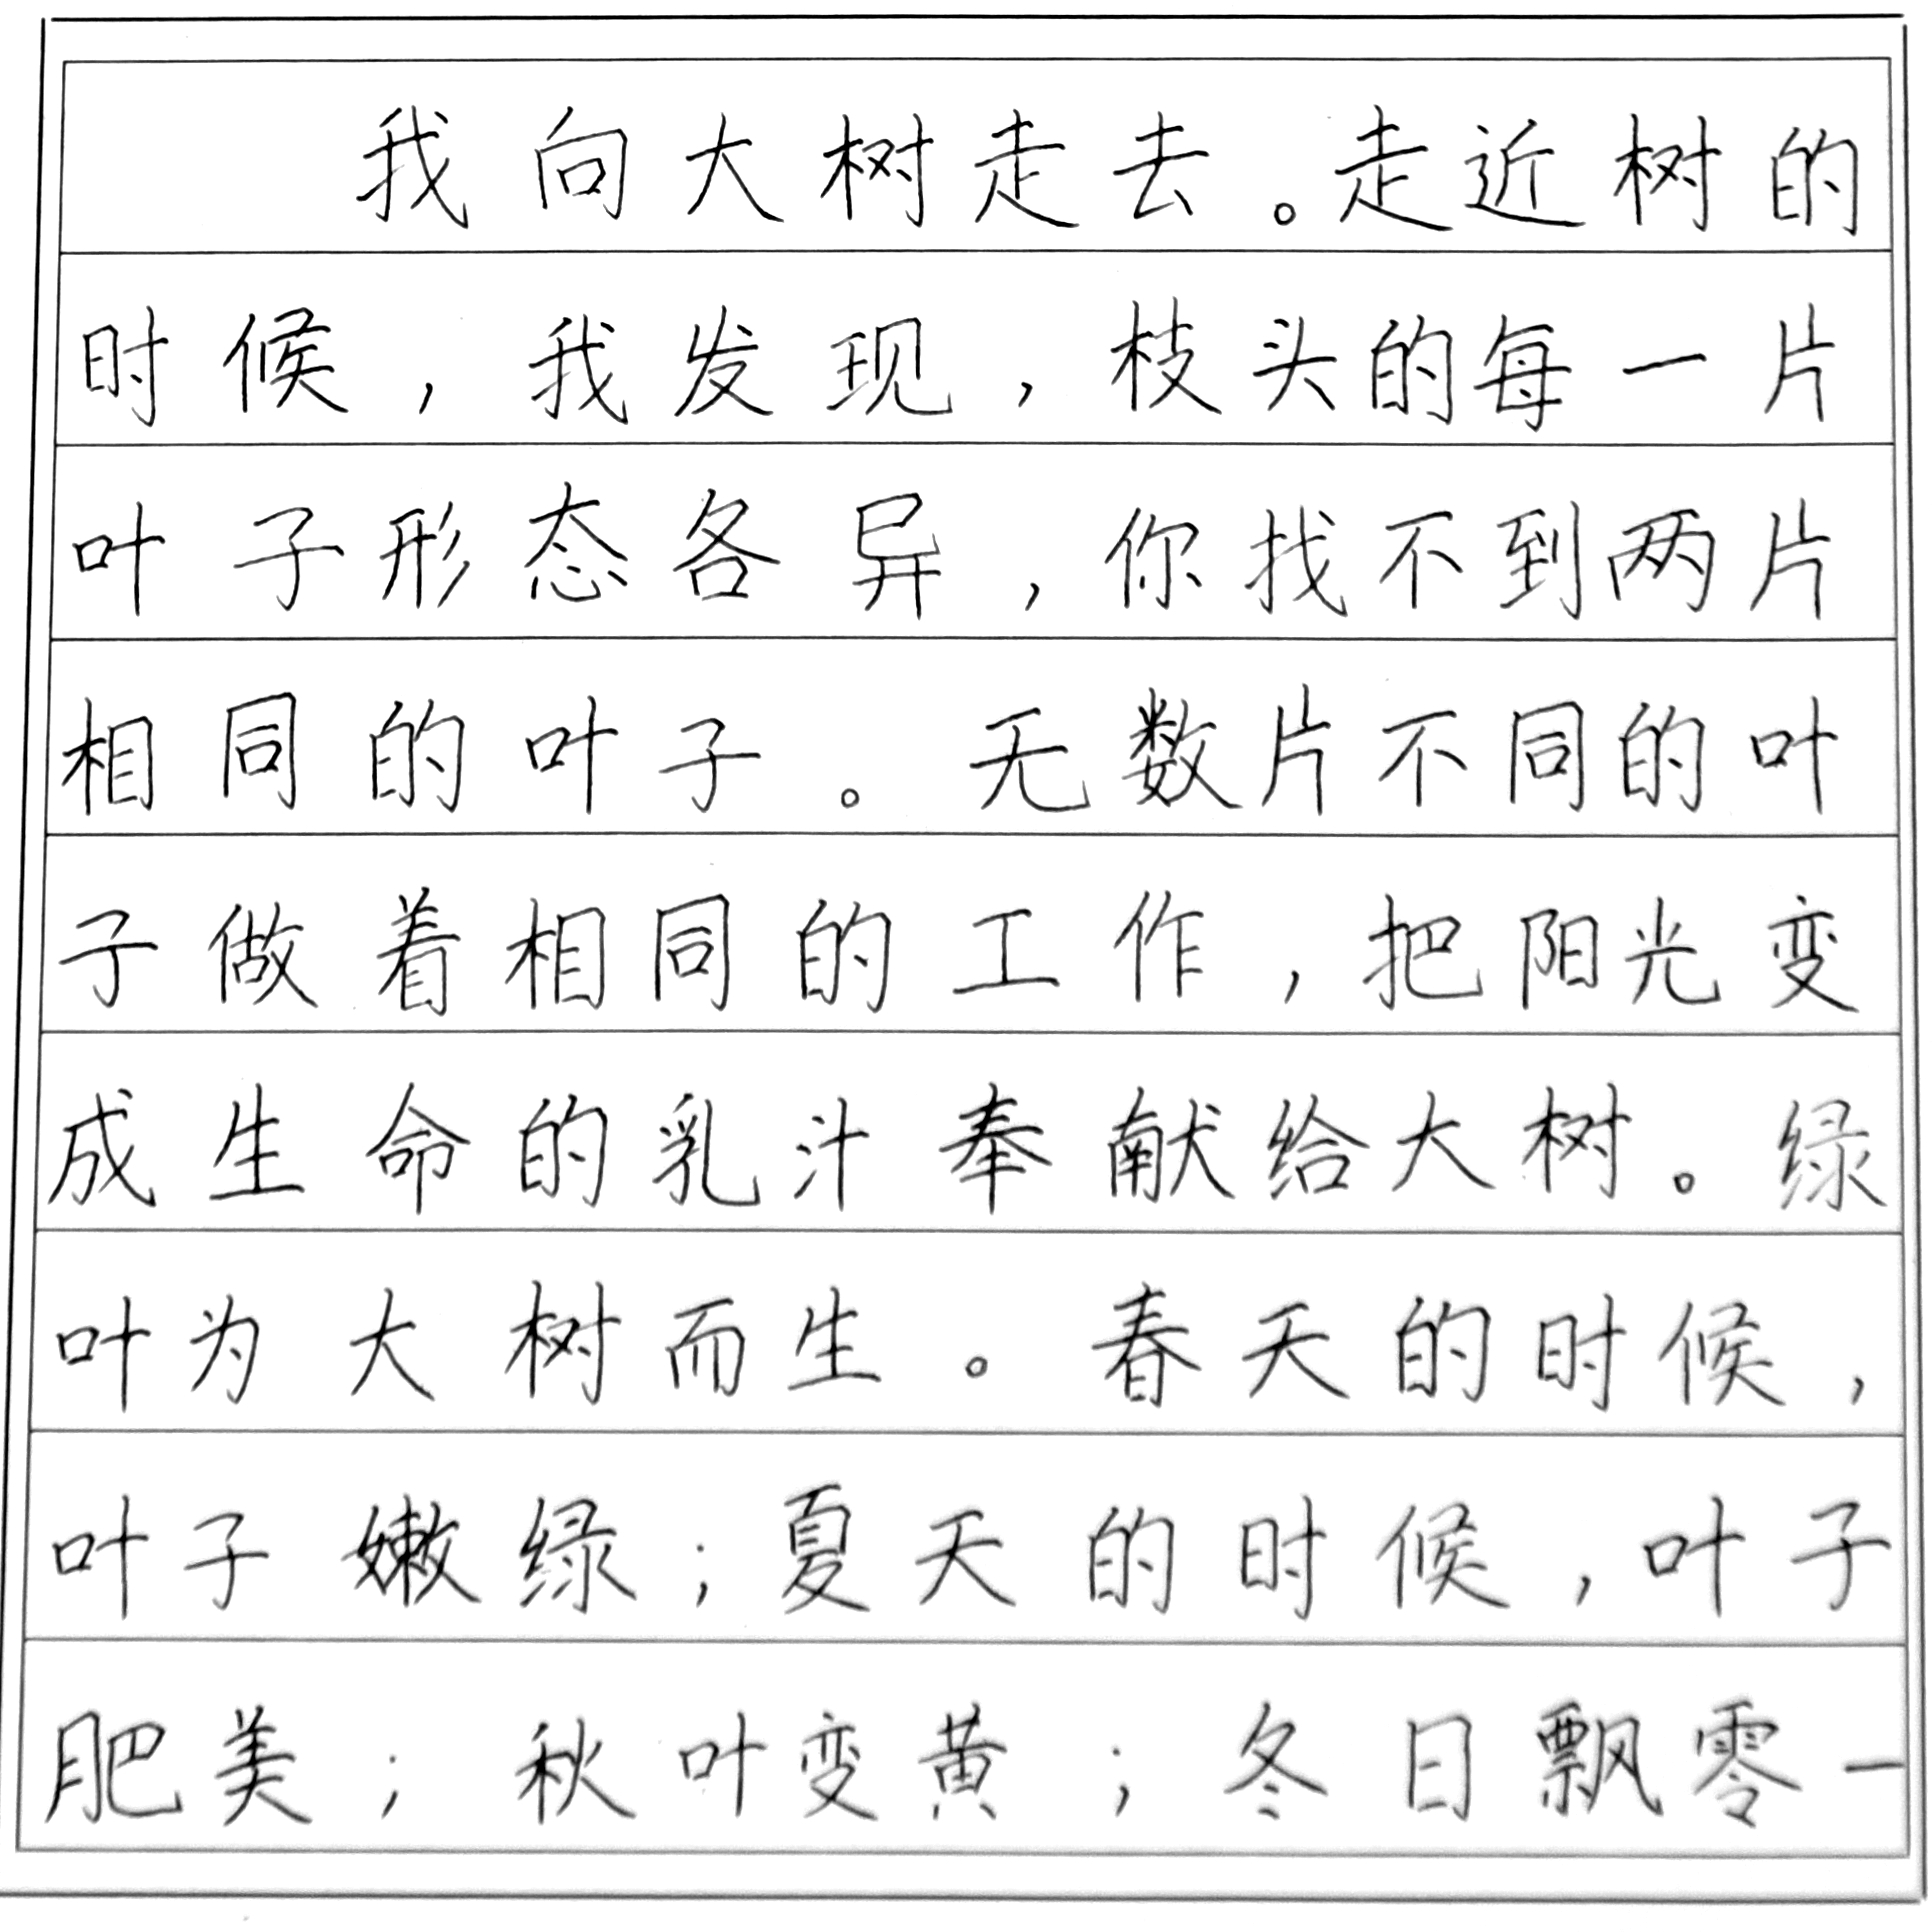 我向大树走去。走近树的
时候，我发现，枝头的每一片
叶子形态各异，你找不到两片
相同的叶子。无数片不同的叶
子做着相同的工作，把阳光变
成生命的乳汁奉献给大树。绿
叶为大树而生。春天的时候，
叶子嫩绿；夏天的时候，叶子
肥美；秋叶变黄；冬日飘零一